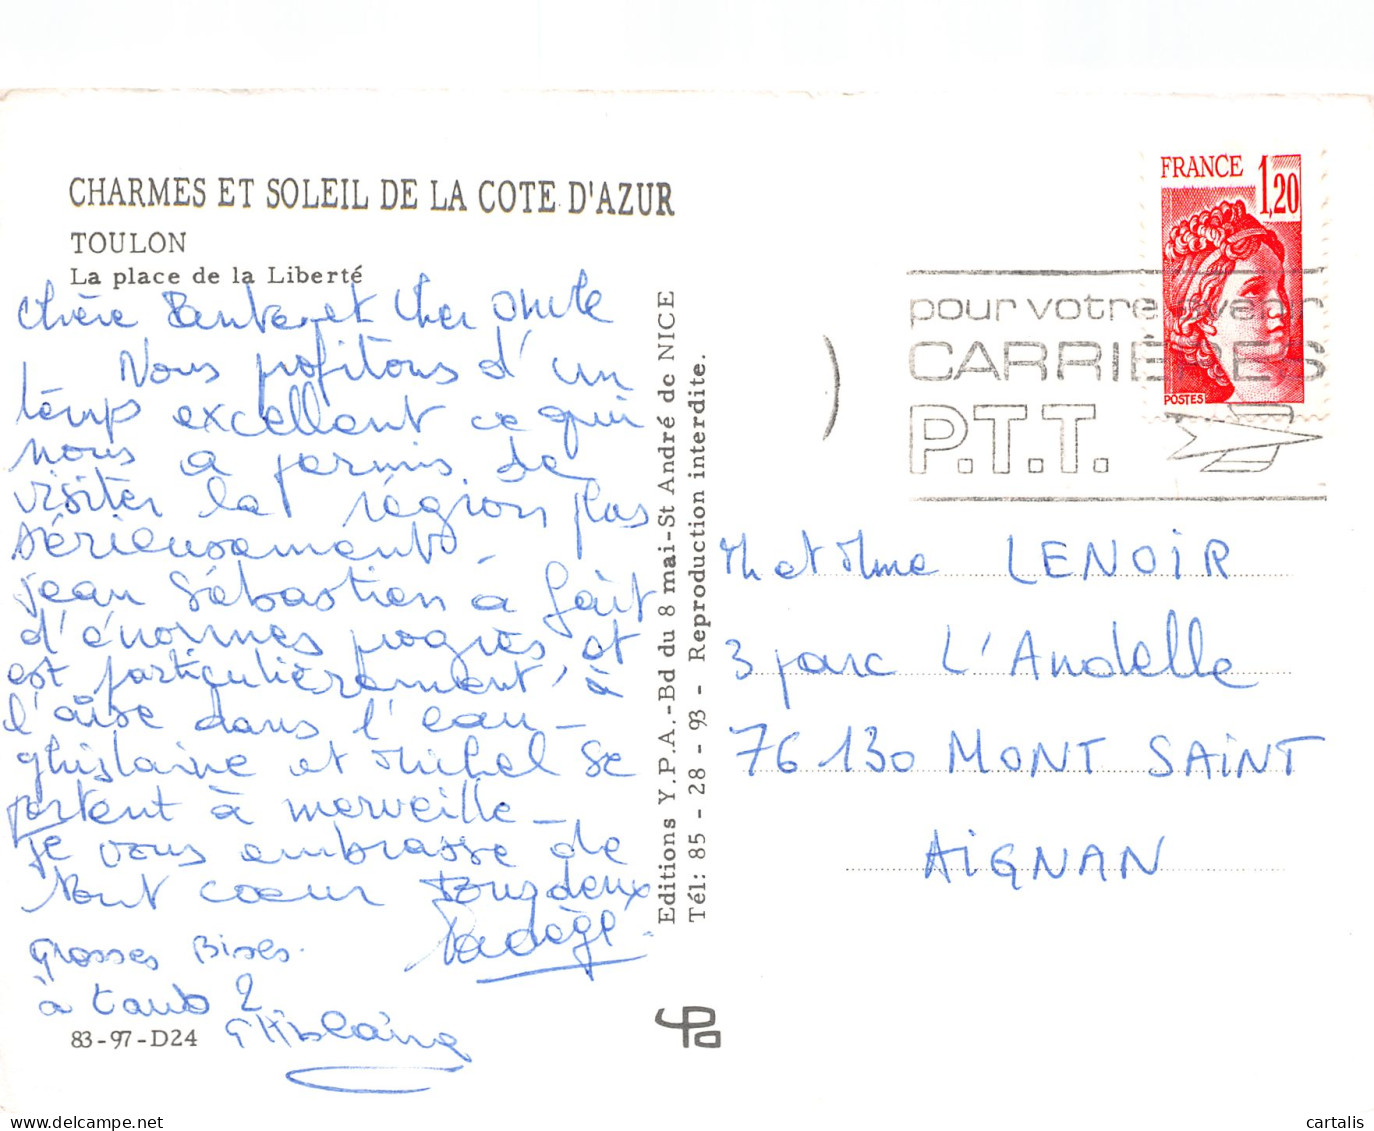 CHARMES ET SOLEIL DE LA COTE D'AZUR
TOULON
La place de la Liberté
Chère Tante et Cher Oncle
Nous profitons d'un
temps excellent ce qui
nous a permis de
visiter la région plus
sérieusement
Jean Sébastien a fait
d'énormes progrès et
est particulièrement à
l'aise dans l'eau -
Ghislaine et Michel se
portent à merveille -
Je vous embrasse de
tout cœur tous deux
Nadège
Grosses Bises.
à tous 2
GHislaine
83-97-D24
Editions Y.P.A.-Bd du 8 mai-St André de NICE
Tél: 85 - 28 - 93 - Reproduction interdite.
FRANCE 1,20
POSTES
pour votre avenir
CARRIÈRES
P.T.T.
M et Mme LENOIR
3 parc L'Andelle
76130 MONT SAINT
AIGNAN
cartalis